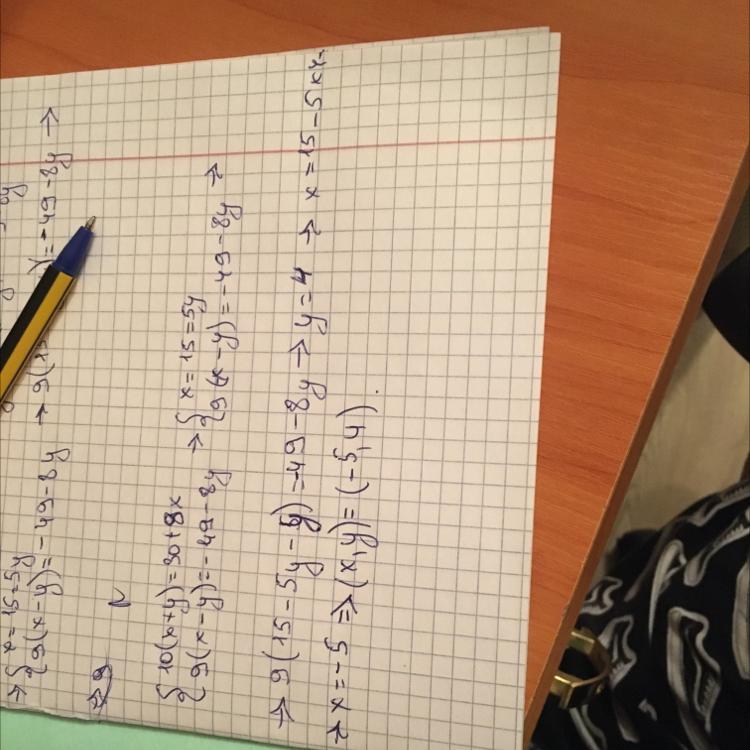 → { x = 15 = 5y
{ 9(x-y) = -49-8y → 9(15 y = -49-8y →
→ 9
{ 10(x+y) = 30+8x
{ 9(x-y) = -49-8y
→ { x = 15 = 5y
{ 9(x-y) = -49-8y →
→ 9(15-5y-y) = -49-8y → y = 4 → x = 15-5×4-
→ x = -5 ⇒ (x,y) = (-5,4).